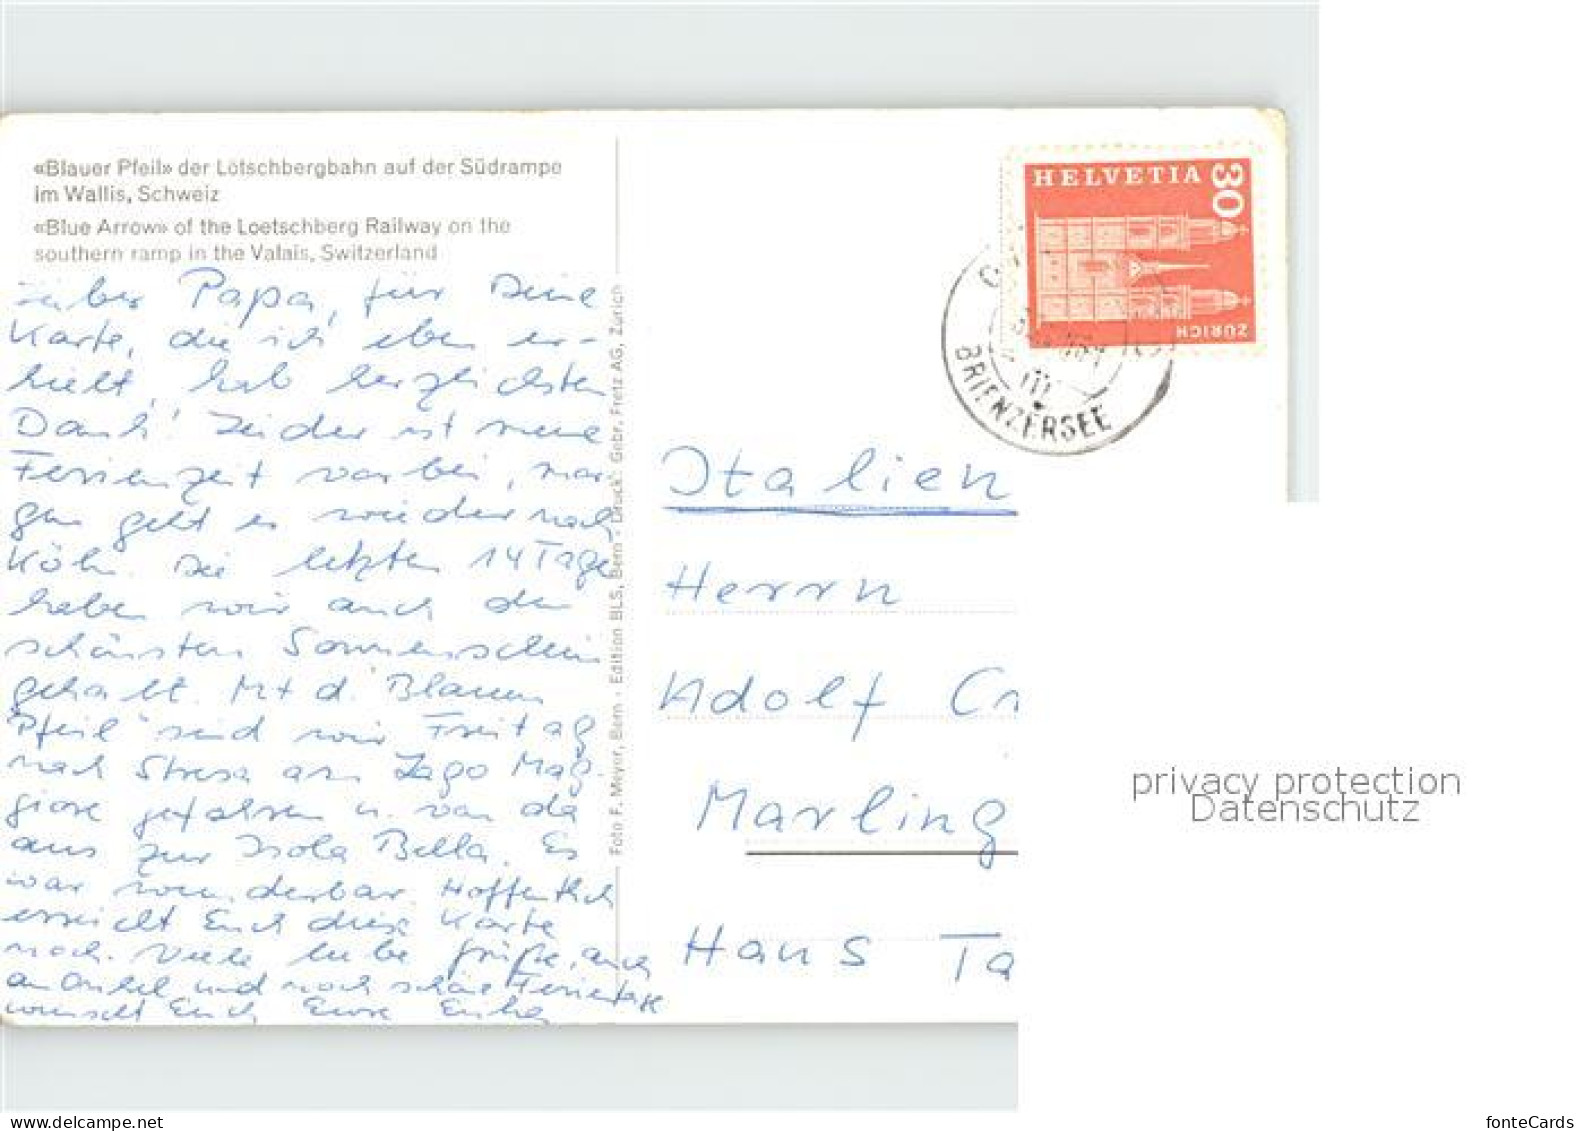 «Blauer Pfeil» der Lötschbergbahn auf der Südrampe
im Wallis, Schweiz
«Blue Arrow» of the Loetschberg Railway on the
southern ramp in the Valais, Switzerland
Lieber Papa, für Deine
Karte, die ich eben er-
hielt, hab herzlichsten
Dank! Leider ist meine
Ferienzeit vorbei, mor
gen geht es wieder nach
Köln. Die letzten 14 Tage
haben wir auch den
schönsten Sonnenschein
gehabt. Mit d. "Blauen
Pfeil" sind wir Freitag
nach Stresa am Lago Mag-
giore gefahren u. von da
aus zur Isola Bella. Es
war wunderbar. Hoffentlich
erreicht Euch diese Karte
noch. Viele liebe Grüße, auch
an Onkel und noch schöne Ferientage
wünscht Euch Eure
Foto F. Meyer, Bern - Edition BLS, Bern - Druck: Gebr. Fretz AG, Zürich
HELVETIA
30
ZÜRICH
BRIENZERSEE
Italien
Herrn
Adolf
Marling
Haus Ta
privacy protection
Datenschutz
www.delcampe.net
fonteCards